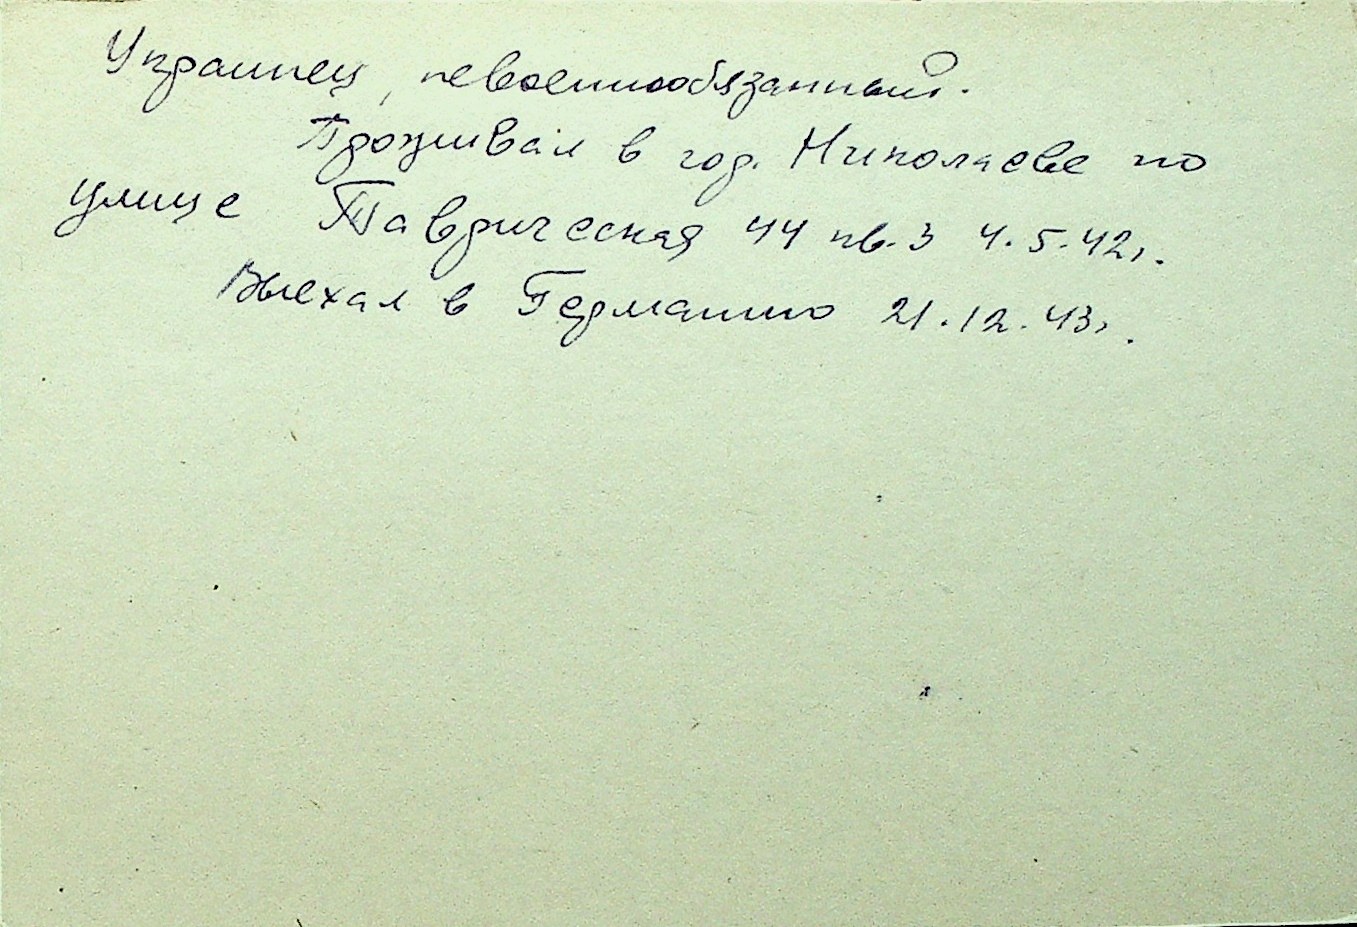 Украинец, невоеннообязанный.
Проживал в гор. Николаеве по
улице Таврическая 44 кв. 3 4.5.42г.
Выехал в Германию 21.12.43г.